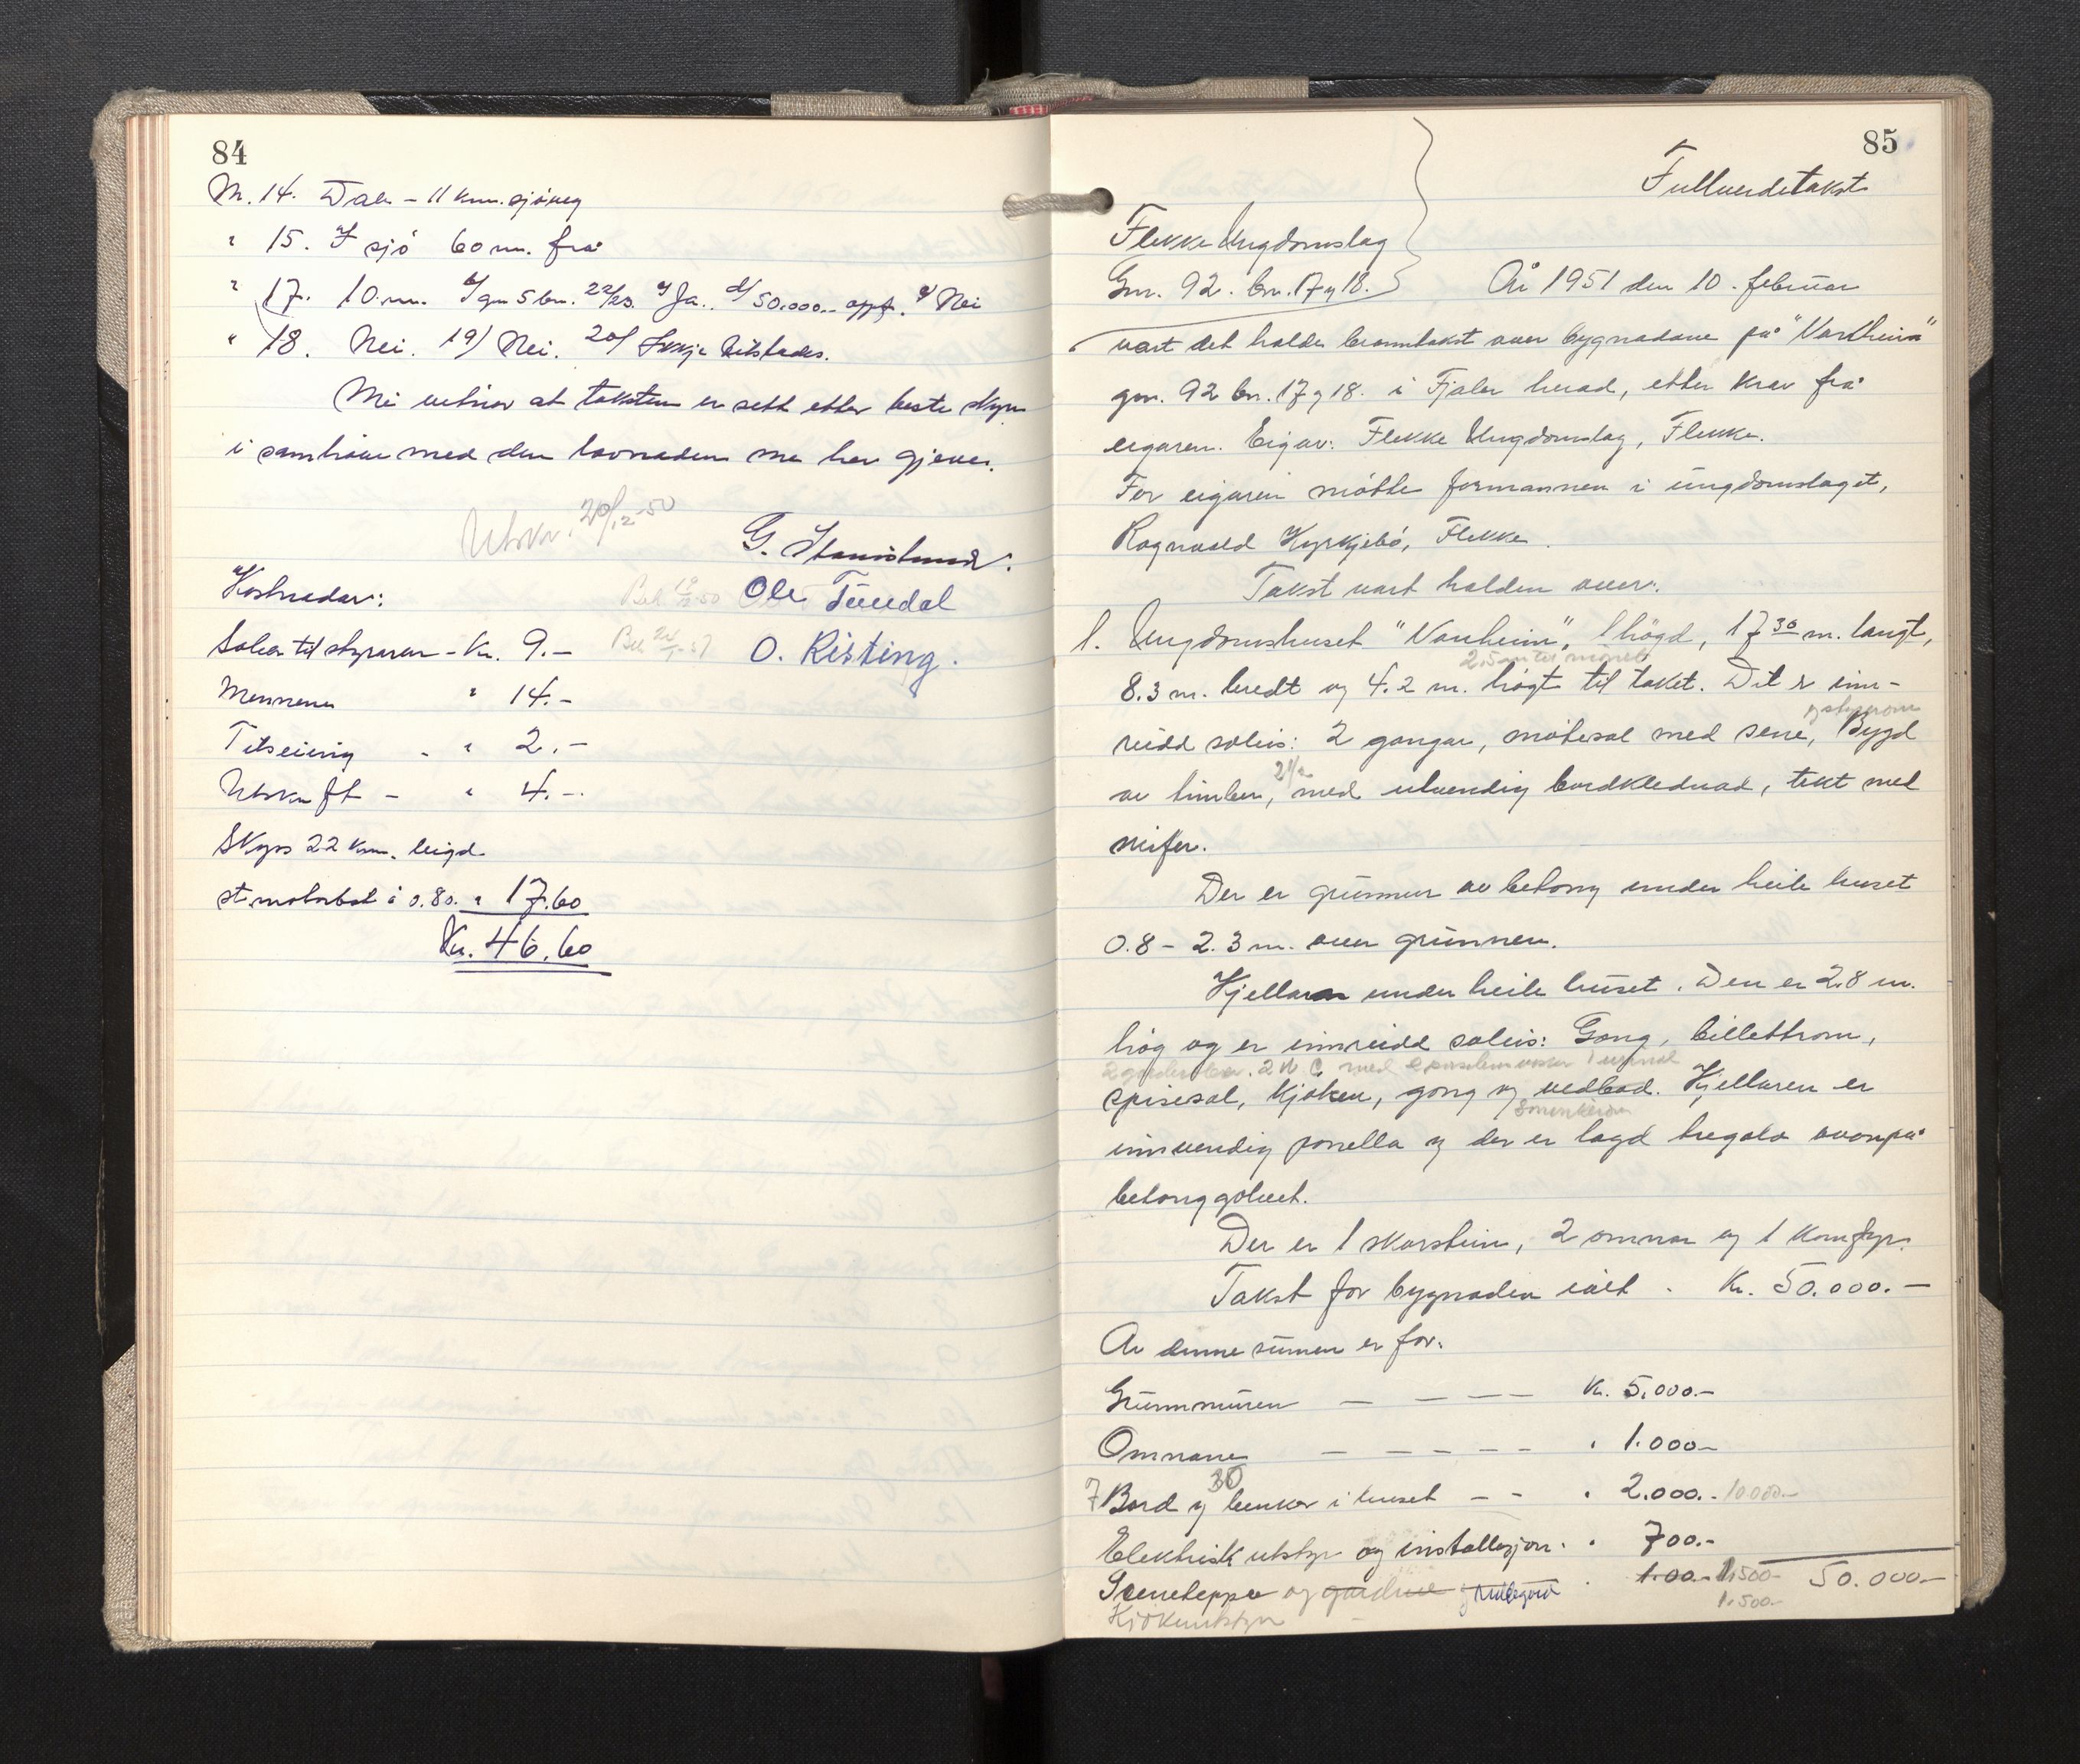 84
M. 14. Dale – 11 km. sjøveg
" 15. I sjø 60 m. frå
" 17. 10. m. b/ gm 5 bm. 22/23. c/ Ja. d/ 50.000.- oppf. e/ Nei
" 18. Nei. 19/ Nei. 20/ Ikkje tilstades.
Me vitnar at taksten er sett etter beste skyn
i samhøve med den lovnaden me har gjeve.
Utskr. 20/12-50
G.
Ole Tundal
O. Risting.
Kostnader:
Salær til styraren – Kr. 9.–
Mennene " 14.–
Tilseiing - " 2.–
Utskrift – " 4.–
Skyss 22 km. leigd
st. motorbåt à 0.80. " 17.60
Kr. 46.60
85
Fullverdetakst
Flekke Ungdomslag
Gnr. 92. bnr. 17 og 18.
År 1951 den 10. februar
vart det halde branntakst over bygnadane på "Varheim"
gnr. 92 bnr. 17 og 18. i Fjaler herad, etter krav frå
eigaren. Eigar: Flekke Ungdomslag, Flekke.
For eigaren møtte formannen i ungdomslaget,
Ragnvald Kyrkjebø, Flekke.
Takst vart halden over:
1. Ungdomshuset "Varheim", 1 høgd, 17 30 m. langt,
8.3 m. bredt og 4.2 m. høgt til taket. Det er inn-
og styrerom
reidd soleis: 2 gangar, møtesal med sene, Bygd
2 1/2
av timber, med utvendig bordklednad, tekt med
skifer.
Der er grunnmur av betong under heile huset
0.8 – 2.3 m. over grunnen.
Kjellaren under heile huset. Den er 2.8 m.
høg og er innreidd soleis: Gang, billettrom,
2 garderober. 2 W C med
spisesal, kjøken, gang og vedbod. Kjellaren er
innvendig panella og der er lagd tregolv ovanpå
betonggolvet.
Der er 1 skorstein, 2 omnar og 1 komfyr.
Takst for bygnaden ialt . Kr. 50.000.–
Av denne sumen er for:
Grunnmuren — — — Kr. 5.000.–
Omnane – – – – – " 1.000–
30
7 Bord og benker i huset – – " 2.000.- 10000.-
Elektrisk utstyr og installasjon. " 700.–
Sceneteppe og gardine " 1.00.- 1.500- 50.000–
Kjøkenutstyr 1.500-